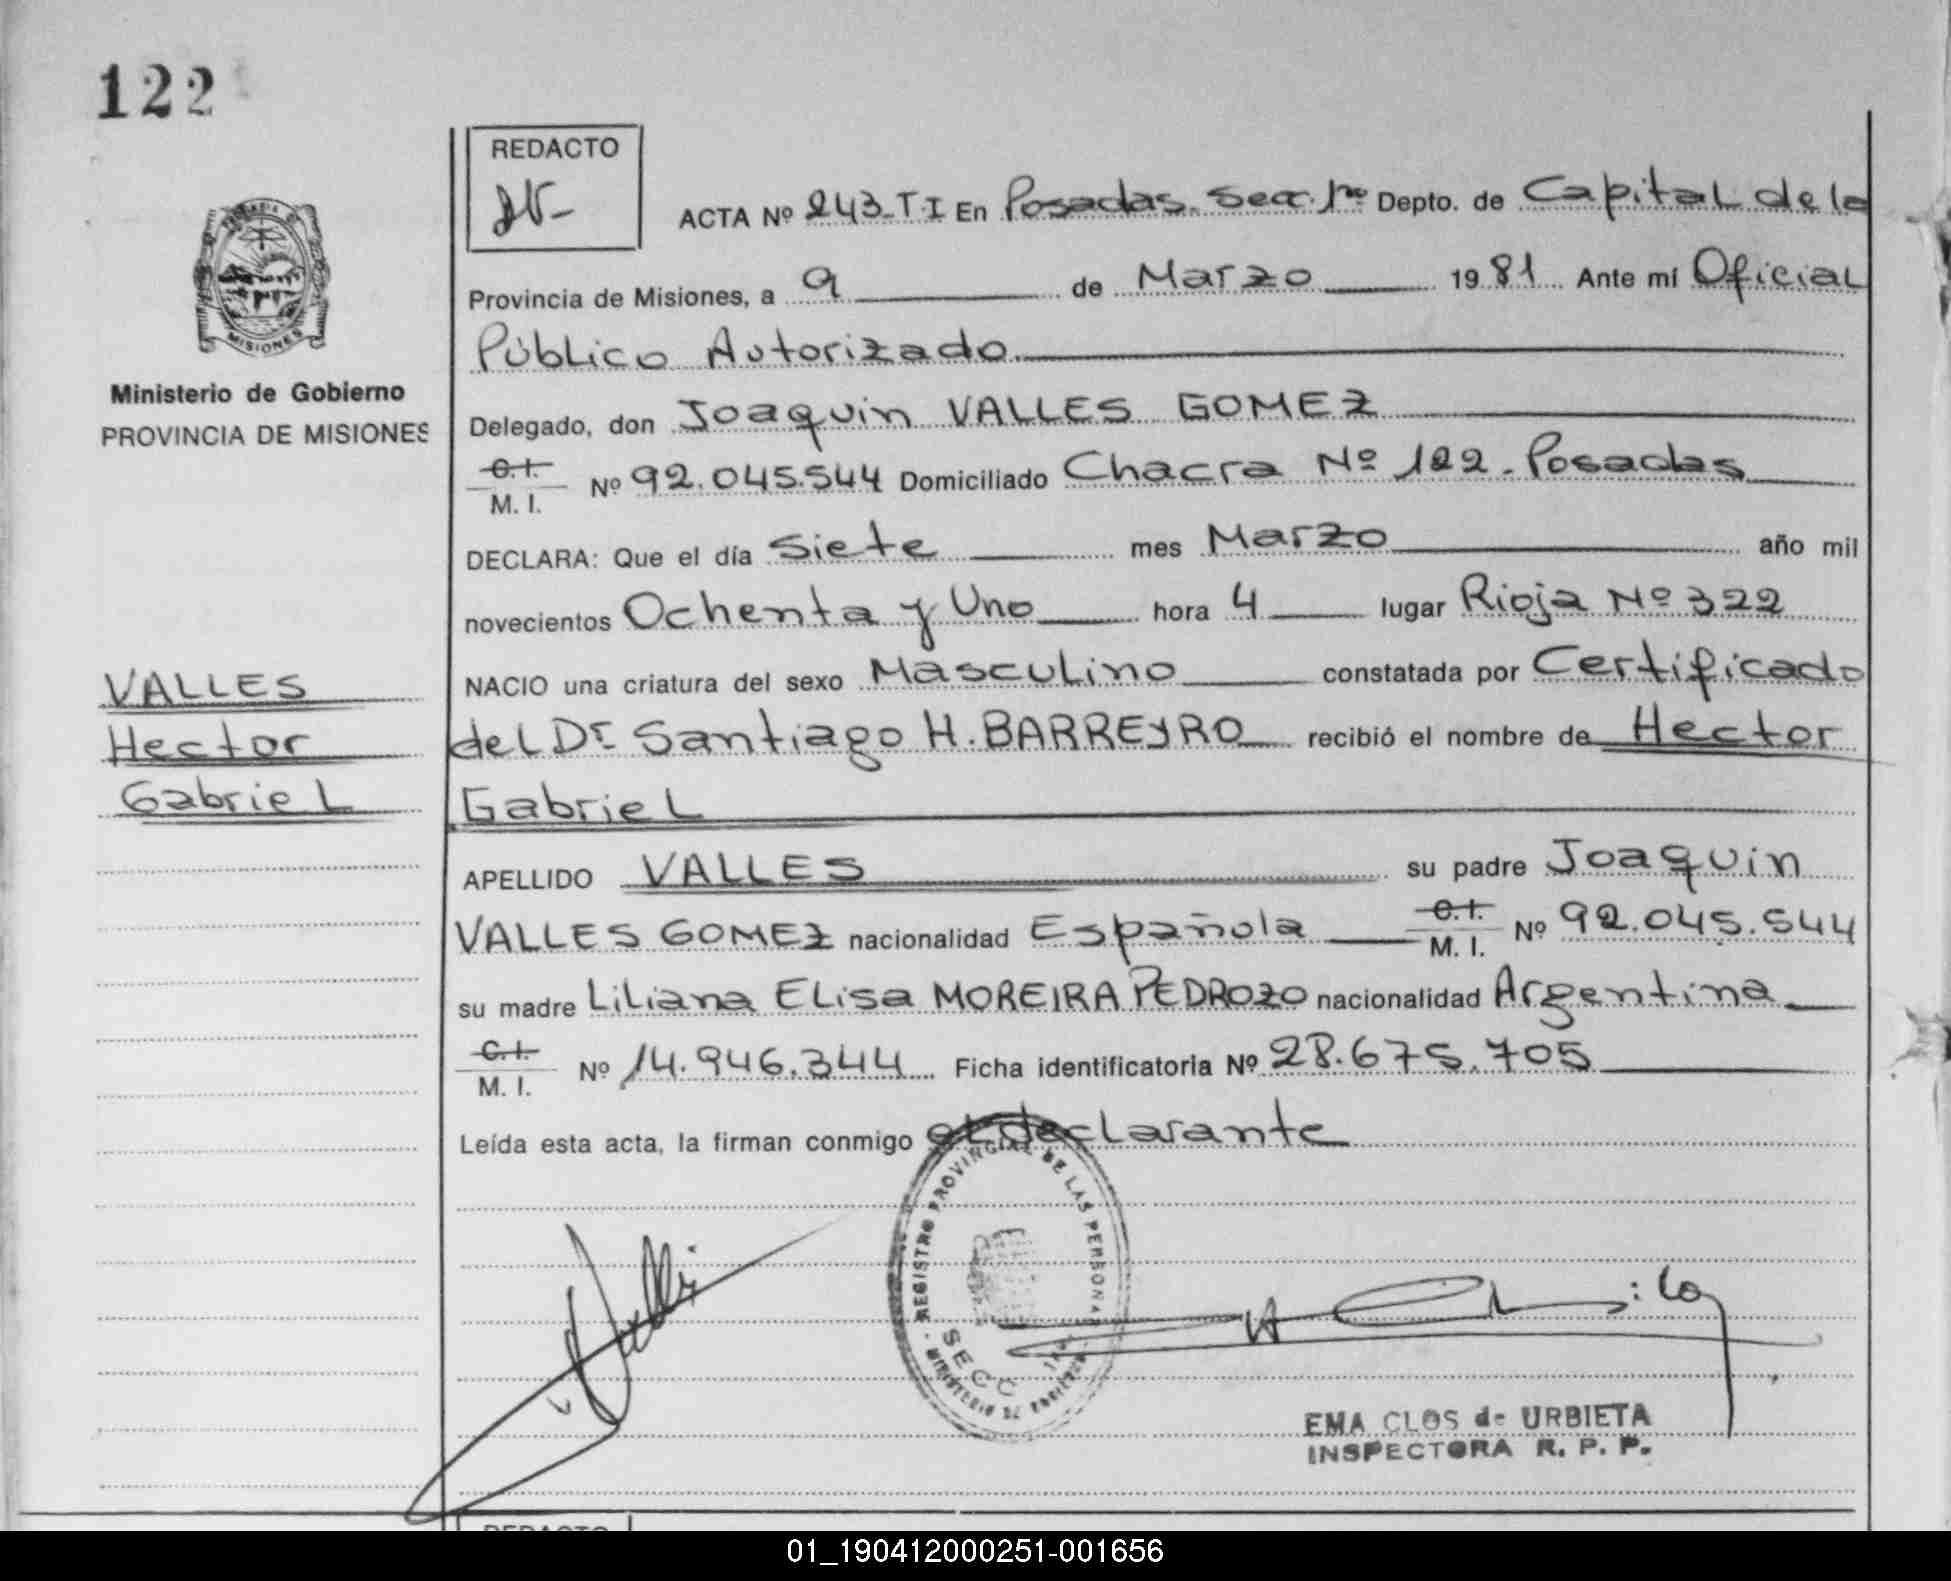 122
REDACTO
ACTA Nº 243-T I En Posadas. Secc. 1ra Depto. de Capital de la
Provincia de Misiones, a 9 de Marzo 1981 Ante mí Oficial
Público Autorizado
Delegado, don Joaquin VALLES GOMEZ
C.I.
M. I. Nº 92.045.544 Domiciliado Chacra Nº 122. Posadas
DECLARA: Que el día Siete mes Marzo año mil
novecientos Ochenta y Uno hora 4 lugar Rioja Nº 322
NACIO una criatura del sexo Masculino constatada por Certificado
del Dr. Santiago H. BARREYRO recibió el nombre de Hector
Gabriel
APELLIDO VALLES su padre Joaquin
VALLES GOMEZ nacionalidad Española C.I. M. I. Nº 92.045.544
su madre Liliana Elisa MOREIRA PEDROZO nacionalidad Argentina
C.I.
M. I. Nº 14.946.344 Ficha identificatoria Nº 28.675.705
Leída esta acta, la firman conmigo el declarante
MISIONES
Ministerio de Gobierno
PROVINCIA DE MISIONES
VALLES
Hector
Gabriel
REGISTRO PROVINCIAL DE LAS PERSONAS
SECC 1ra
MINISTERIO DE GOBIERNO
EMA CLOS de URBIETA
INSPECTORA R. P. P.
REDACTO
01_190412000251-001656